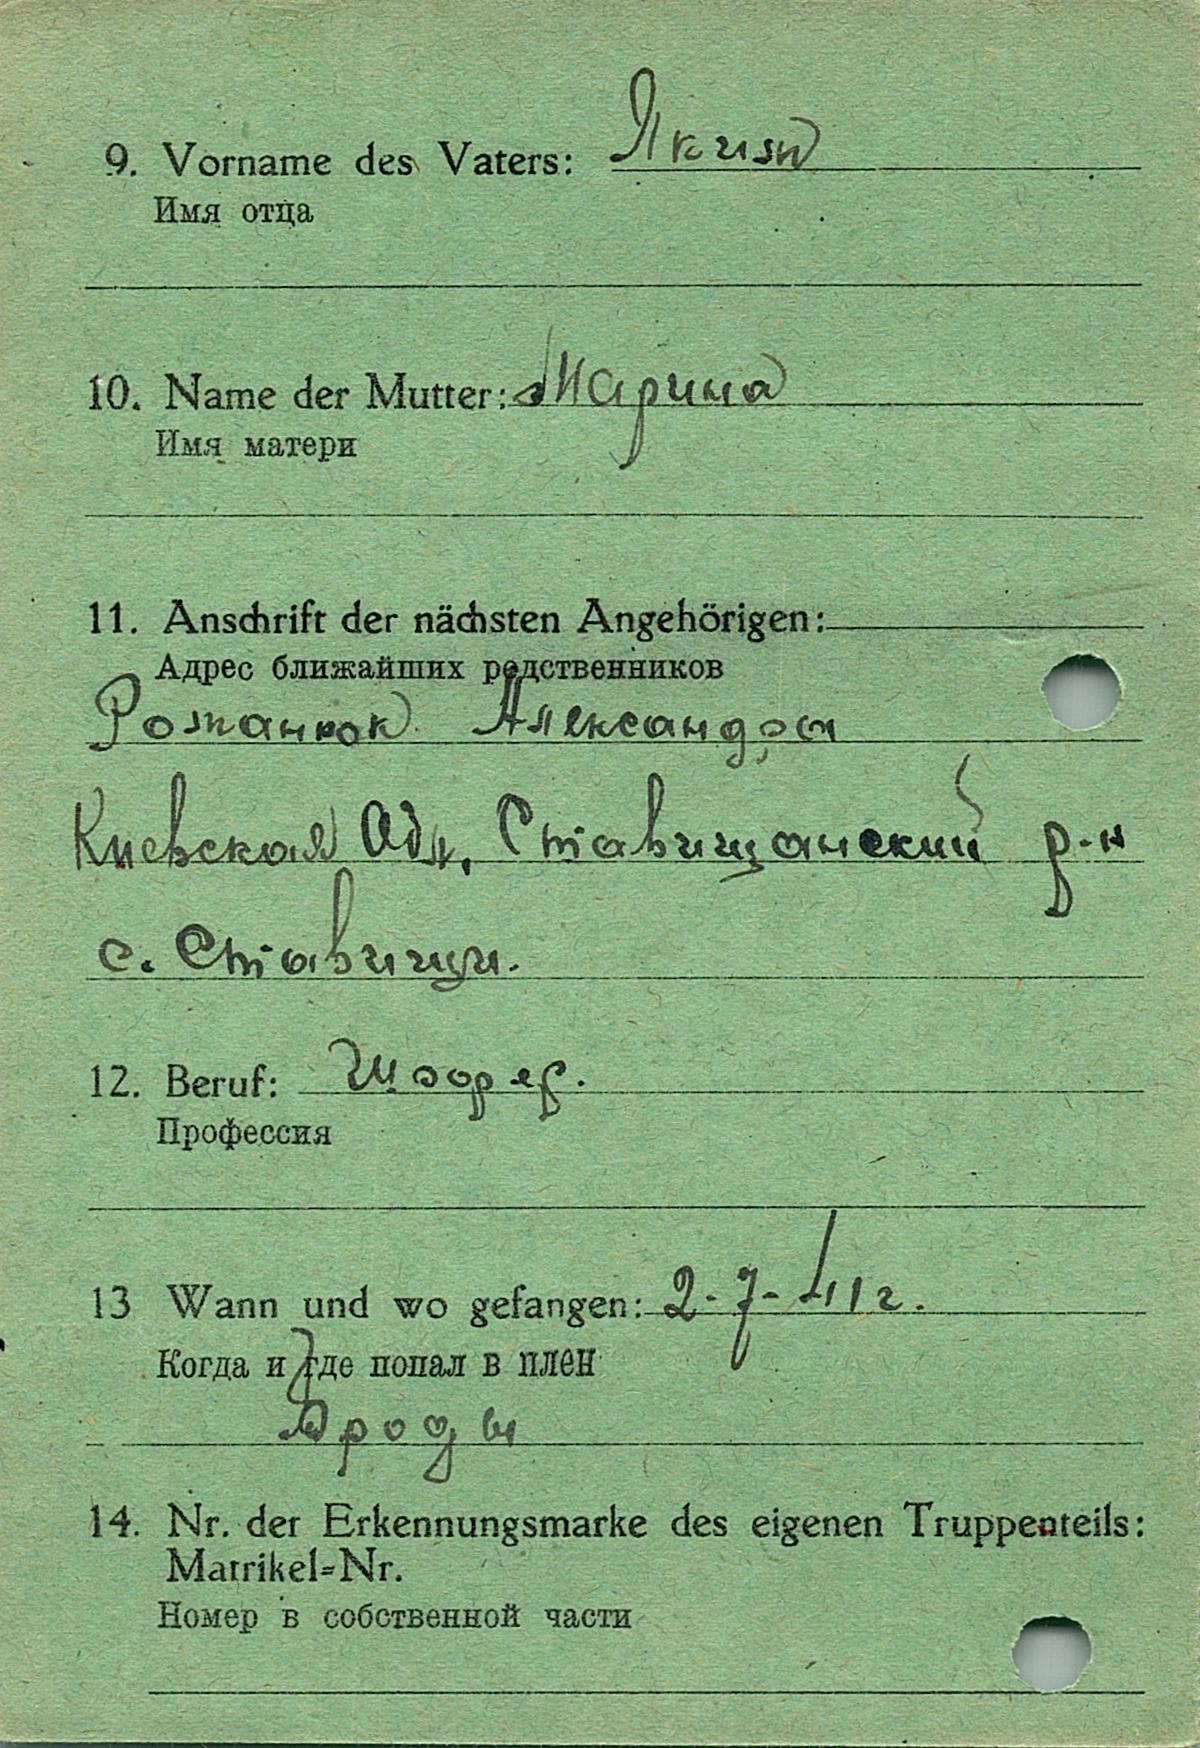 9. Vorname des Vaters: Яким
Имя отца
10. Name der Mutter: Марина
Имя матери
11. Anschrift der nächsten Angehörigen:
Адрес ближайших родственников
Романюк Александра
Киевская Обл, Ставищанский р-н
с. Ставищи.
12. Beruf: Шофер.
Профессия
13 Wann und wo gefangen: 2-7-41г.
Когда и где попал в плен
Броды
14. Nr. der Erkennungsmarke des eigenen Truppenteils:
Matrikel=Nr.
Номер в собственной части